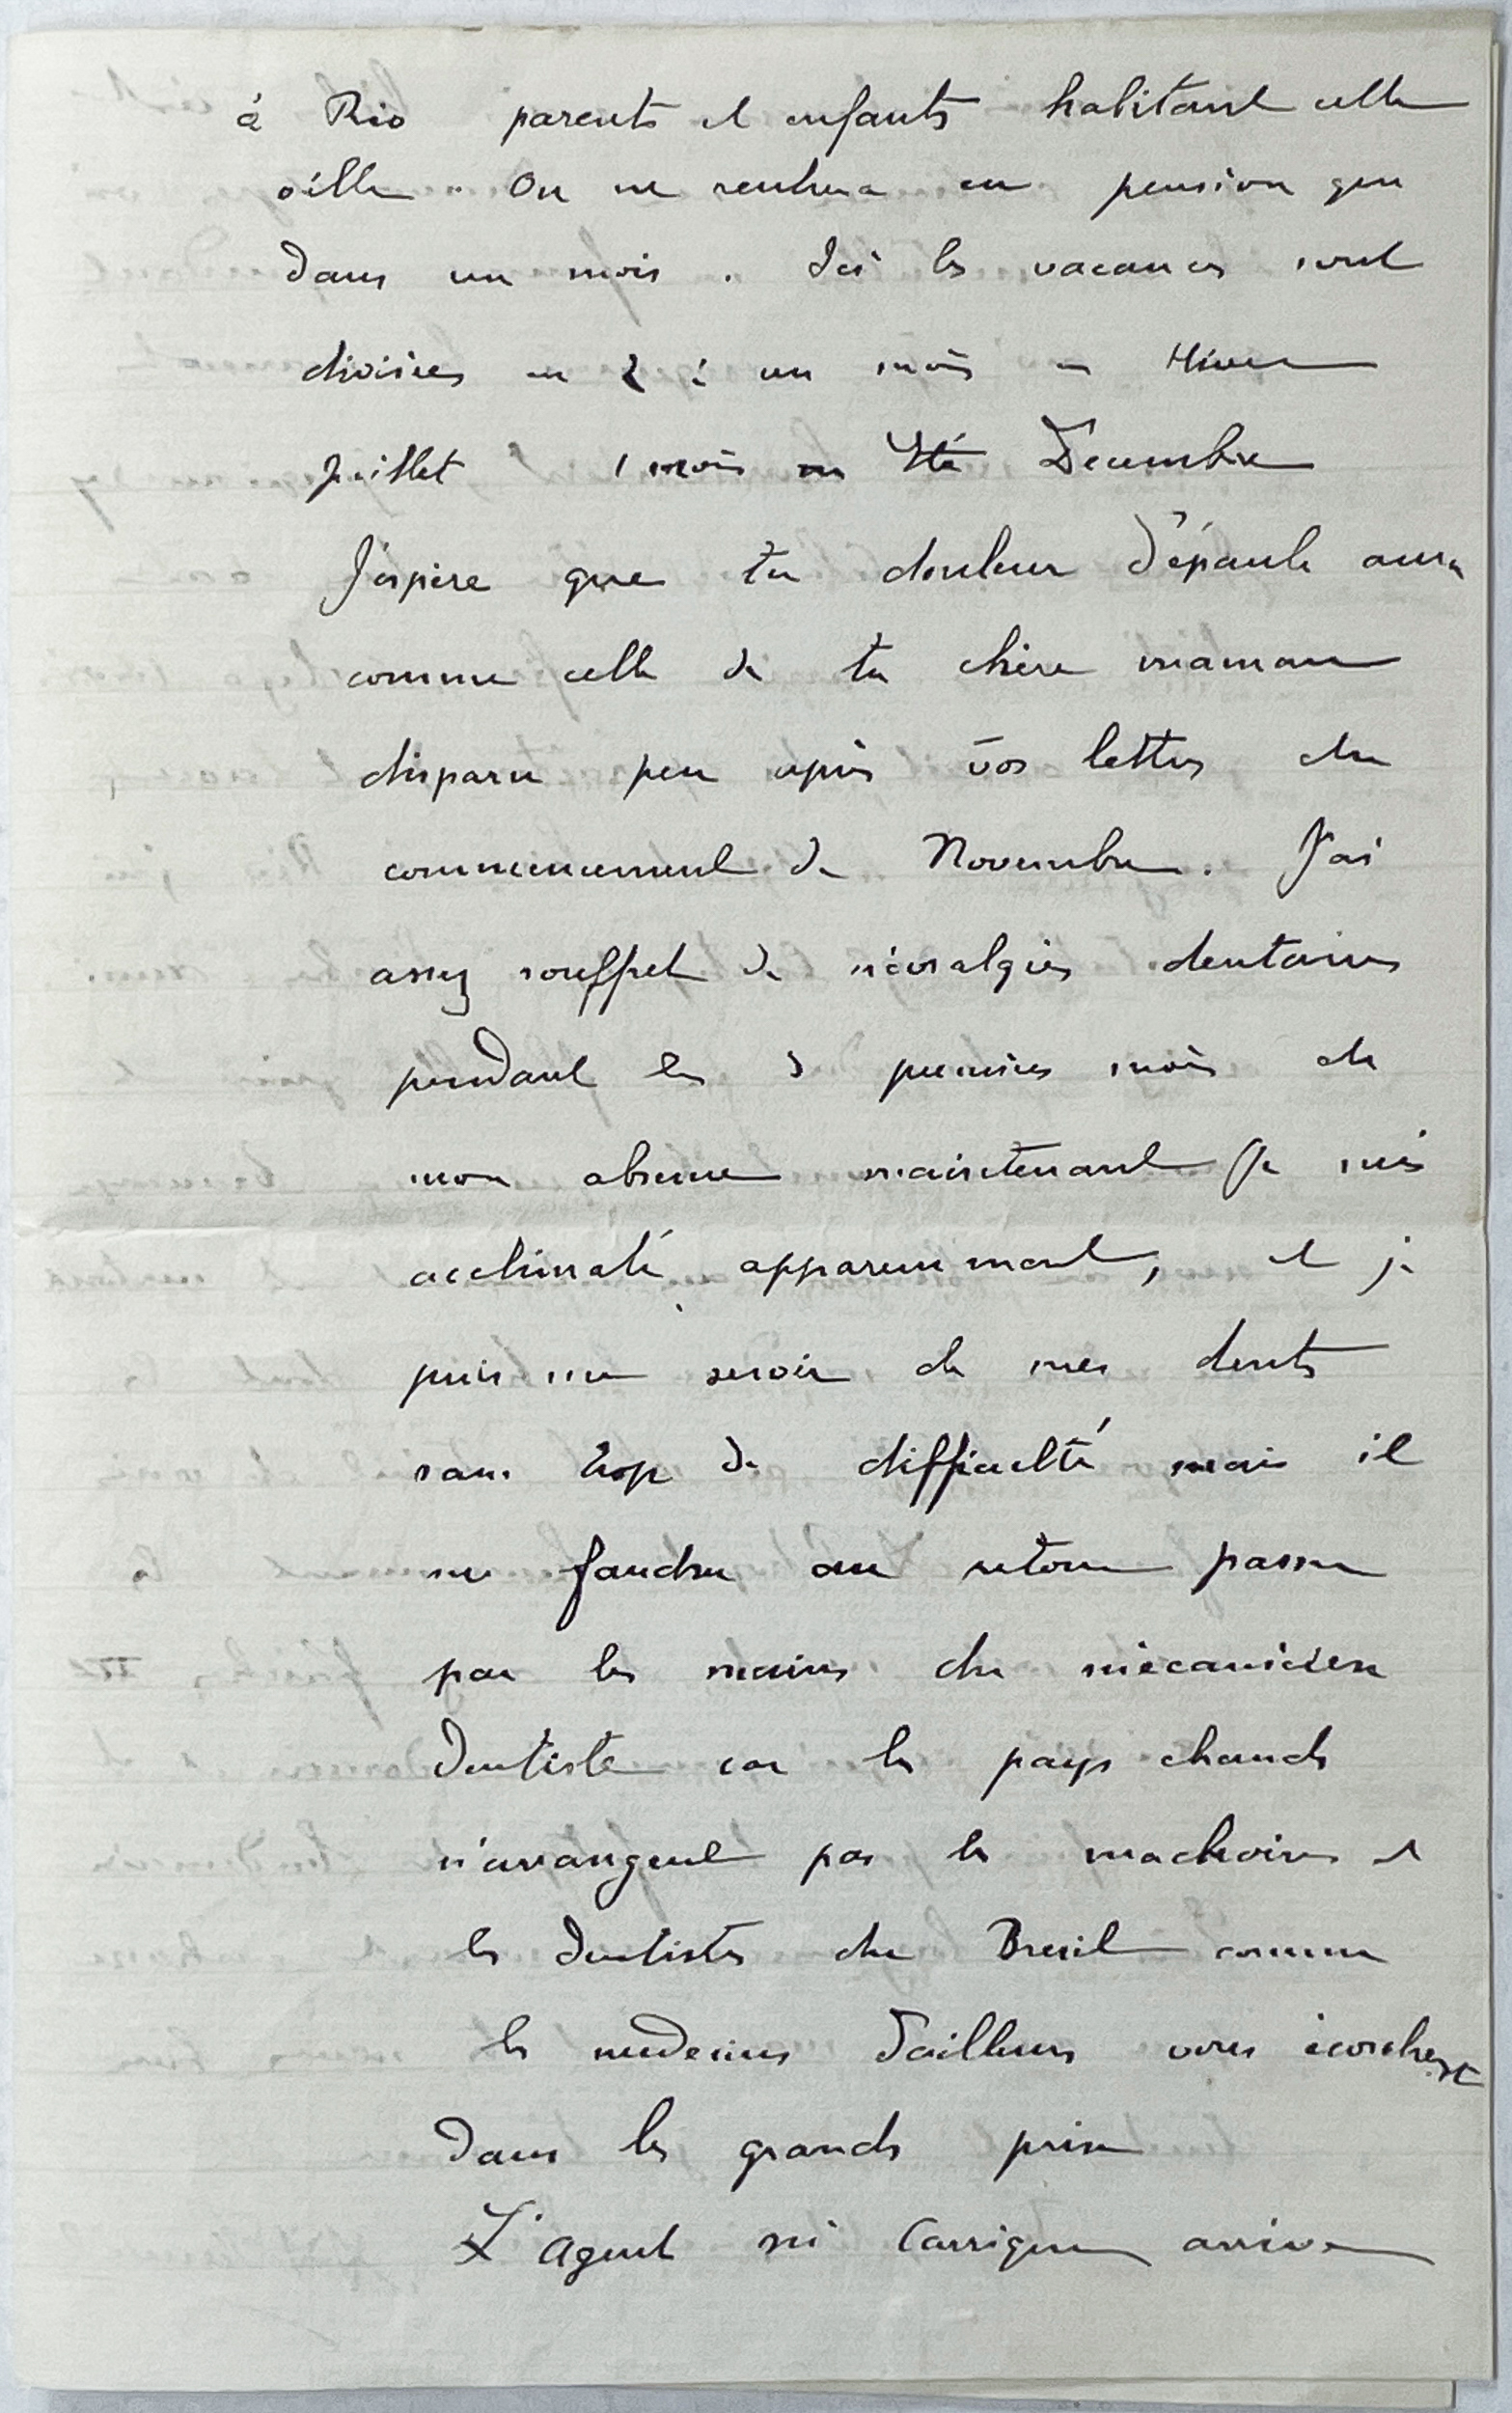 à Rio parents et enfants habitant cette
ville. On ne rentrera en pension que
dans un mois. Ici les vacances sont
divisées en 2 : un mois en Hiver
Juillet 1 mois en Eté Decembre
J'espère que ta douleur d'épaule aura
comme celle de ta chère maman
disparu peu après vos lettres du
commencement de Novembre. J'ai
assez souffert de névralgies dentaires
pendant les 3 premiers mois de
mon absence maintenant je suis
acclimaté apparemment, et je
puis me servir de mes dents
sans trop de difficulté mais il
me faudra au retour passer
par les mains du mécanicien
dentiste car les pays chauds
n'arrangent pas les machoires et
les dentistes du Bresil comme
les medecins d'ailleurs vous écorchent
dans les grands prix
L'Agent arrive